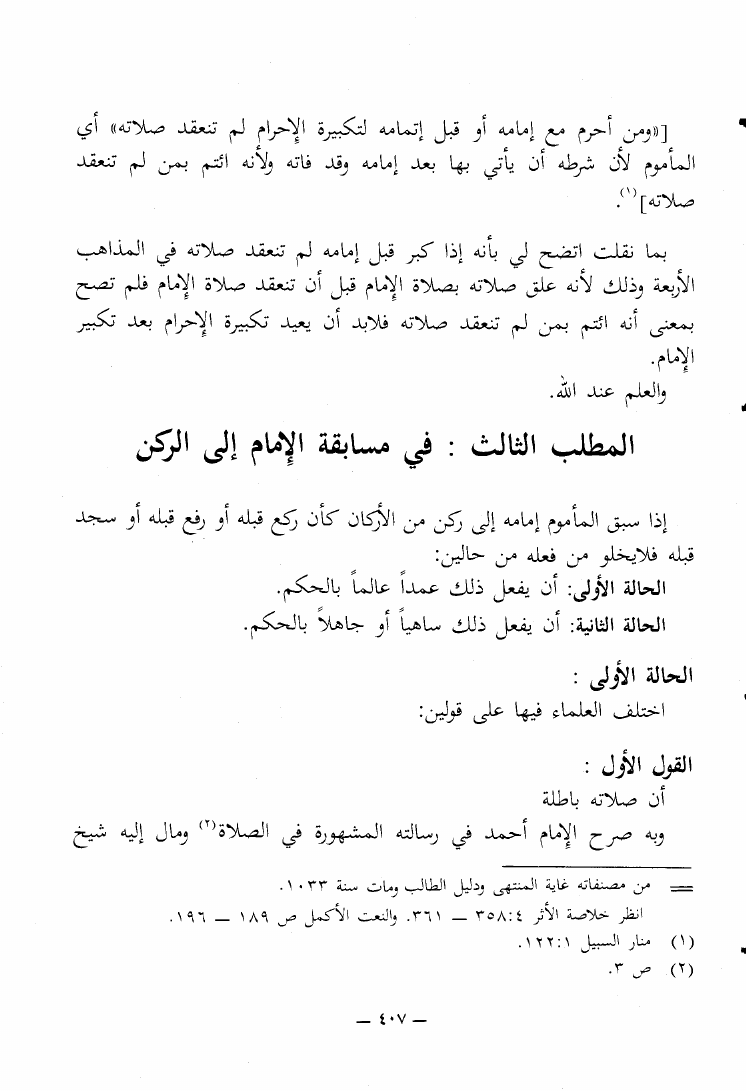 [«ومن أحرم مع إمامه أو قبل إتمامه لتكبيرة الإحرام لم تنعقد صلاته» أي
المأموم لأن شرطه أن يأتي بها بعد إمامه وقد فاته ولأنه ائتم بمن لم تنعقد
صلاته](١).
بما نقلت اتضح لي بأنه إذا كبر قبل إمامه لم تنعقد صلاته في المذاهب
الأربعة وذلك لأنه علق صلاته بصلاة الإمام قبل أن تنعقد صلاة الإمام فلم تصح
بمعنى أنه ائتم بمن لم تنعقد صلاته فلابد أن يعيد تكبيرة الإحرام بعد تكبير
الإمام.
والعلم عند الله.
المطلب الثالث : في مسابقة الإمام إلى الركن
إذا سبق المأموم إمامه إلى ركن من الأركان كأن ركع قبله أو رفع قبله أو سجد
قبله فلايخلو من فعله من حالين:
الحالة الأولى: أن يفعل ذلك عمداً عالماً بالحكم.
الحالة الثانية: أن يفعل ذلك ساهياً أو جاهلاً بالحكم.
الحالة الأولى :
اختلف العلماء فيها على قولين:
القول الأول :
أن صلاته باطلة
وبه صرح الإمام أحمد في رسالته المشهورة في الصلاة(٢) ومال إليه شيخ
= من مصنفاته غاية المنتهى ودليل الطالب ومات سنة ١٠٣٣.
انظر خلاصة الأثر ٣٥٨:٤ — ٣٦١. والنعت الأكمل ص ١٨٩ — ١٩٦.
(١) منار السبيل ١٢٢:١.
(٢) ص ٣.
— ٤٠٧ —